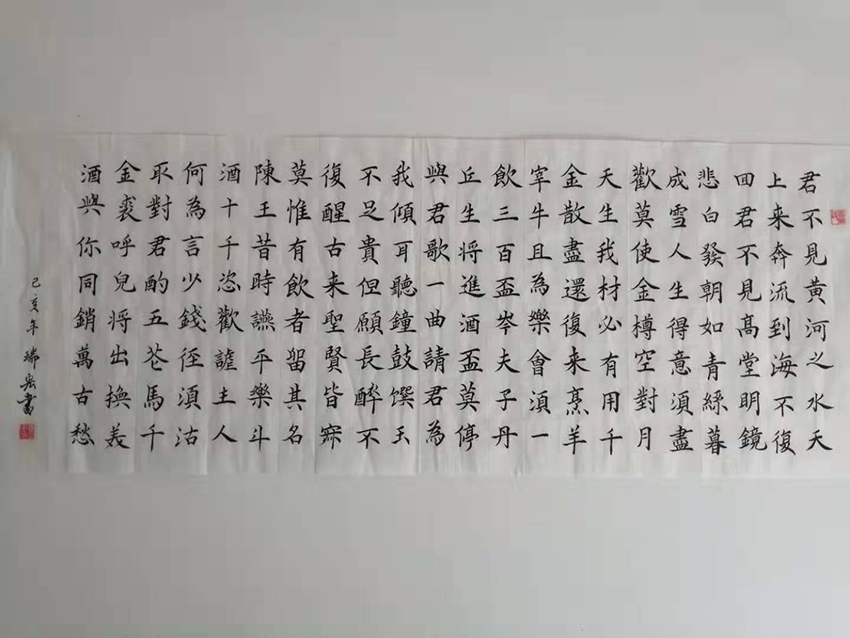 君不見黄河之水天
上来奔流到海不復
回君不見高堂明鏡
悲白發朝如青絲暮
成雪人生得意須盡
歡莫使金樽空對月
天生我材必有用千
金散盡還復来烹羊
宰牛且為樂會須一
飲三百盃岑夫子丹
丘生將進酒盃莫停
與君歌一曲請君為
我傾耳聽鐘鼓饌玉
不足貴但願長醉不
復醒古来聖賢皆寂
莫惟有飲者留其名
陳王昔時讌平樂斗
酒十千恣歡謔主人
何為言少錢徑須沽
取對君酌五花馬千
金裘呼兒將出換美
酒與你同銷萬古愁
己亥年瑞書